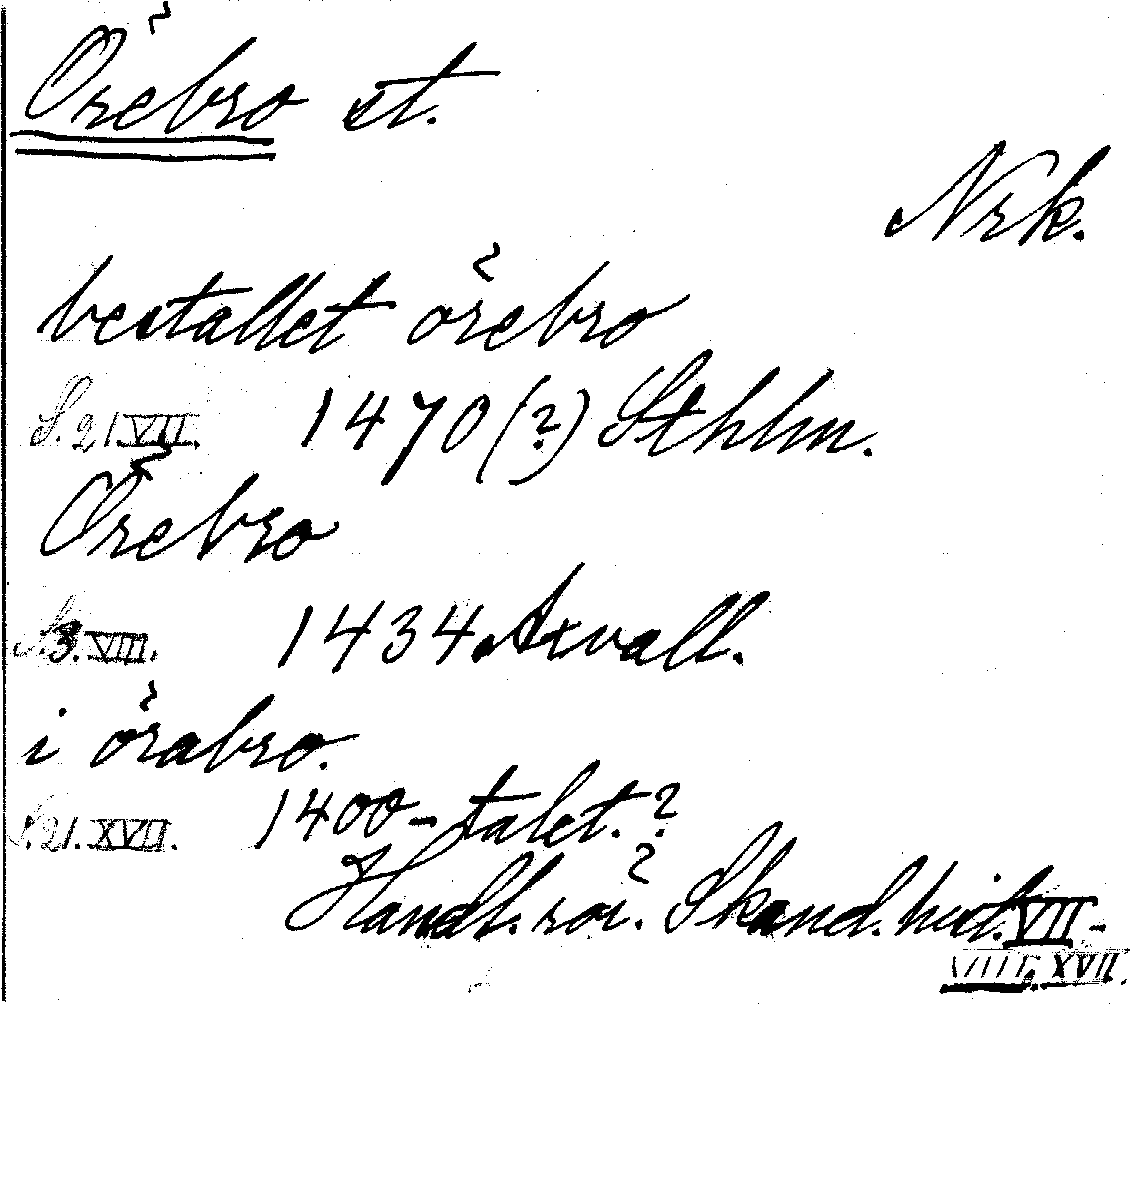 Örebro st.
Nrk.
bestallet örebro
S. 21 VII. 1470 (?) Sthlm.
Örebro
S. 3. VIII. 1434 Axvall.
i örabro.
S. 21. XVII. 1400-talet.?
Handl. rör. Skand. hist. VII-
VIII, XVII.